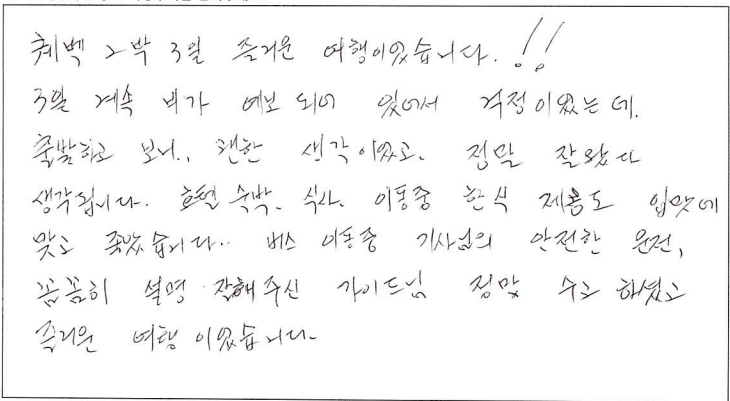 퀘벡 2박 3일 즐거운 여행이었습니다. !!
3일 계속 비가 예보 되어 있어서 걱정이었는데.
출발하고 보니., 괜한 생각이었고. 정말 잘왔다
생각됩니다. 호텔 숙박. 식사. 이동중 한식 제공도 입맛에
맞고 좋았습니다.. 버스 이동중 기사님의 안전한 운전,
꼼꼼히 설명 잘해주신 가이드님 정말 수고 하셨고
즐거운 여행 이었습니다.